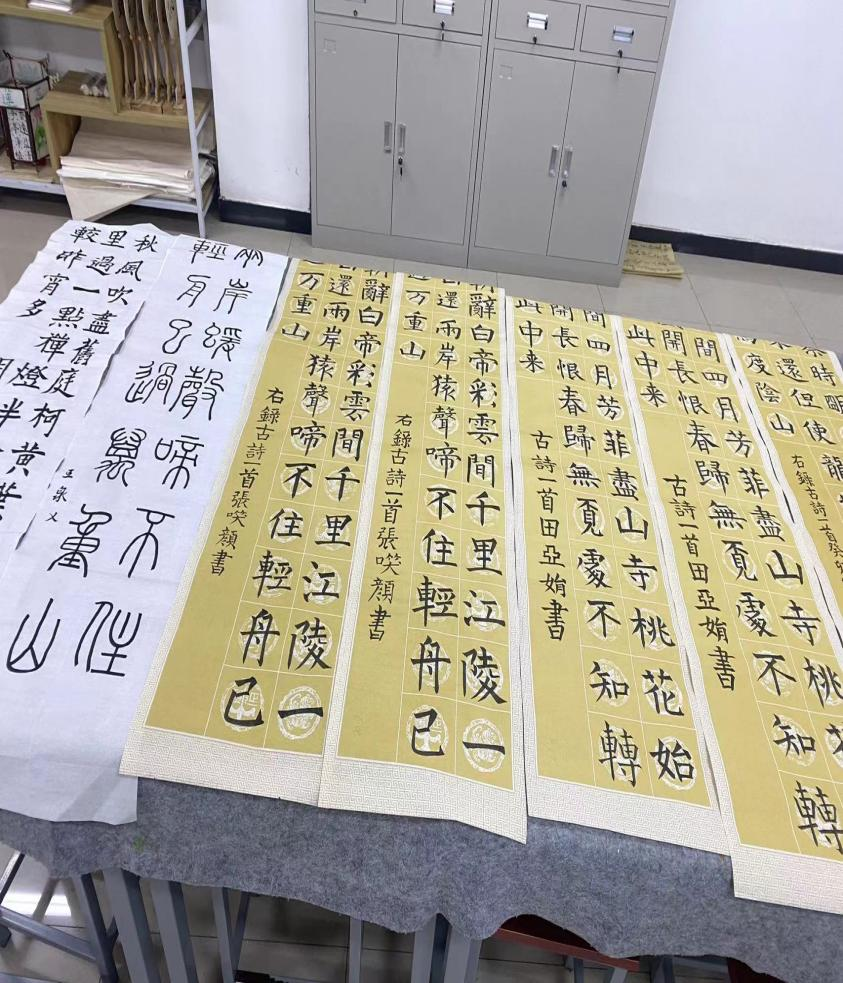 秋風吹盡舊庭柯黃葉
里過一點禪燈半
較昨宵多
兩岸猨聲啼不住
輕舟已過萬重山
辭白帝彩雲間千里江陵一
還兩岸猿聲啼不住輕舟已
过万重山
右錄古詩一首張咲顏書
辭白帝彩雲間千里江陵一
還兩岸猿聲啼不住輕舟已
过万重山
右錄古詩一首張咲顏書
間四月芳菲盡山寺桃花始
開長恨春歸無覓處不知轉
此中来
古詩一首田亞娋書
間四月芳菲盡山寺桃花
開長恨春歸無覓處不知轉
此中来
古詩一首田亞娋書
時明
還但使龍
度陰山
右錄古詩一首